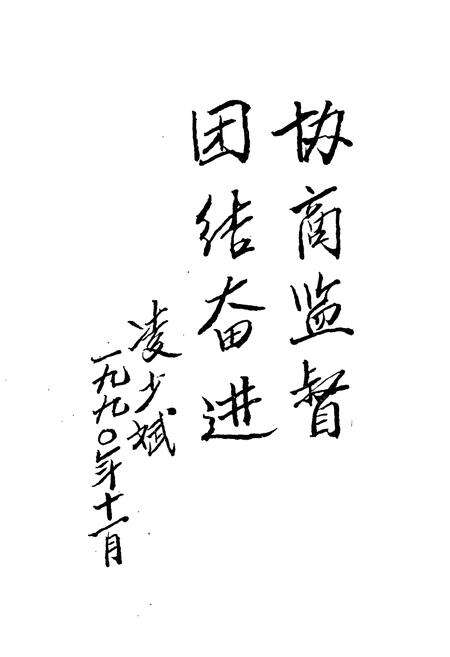 协商监督
团结奋进
凌少斌
一九九〇年十一月